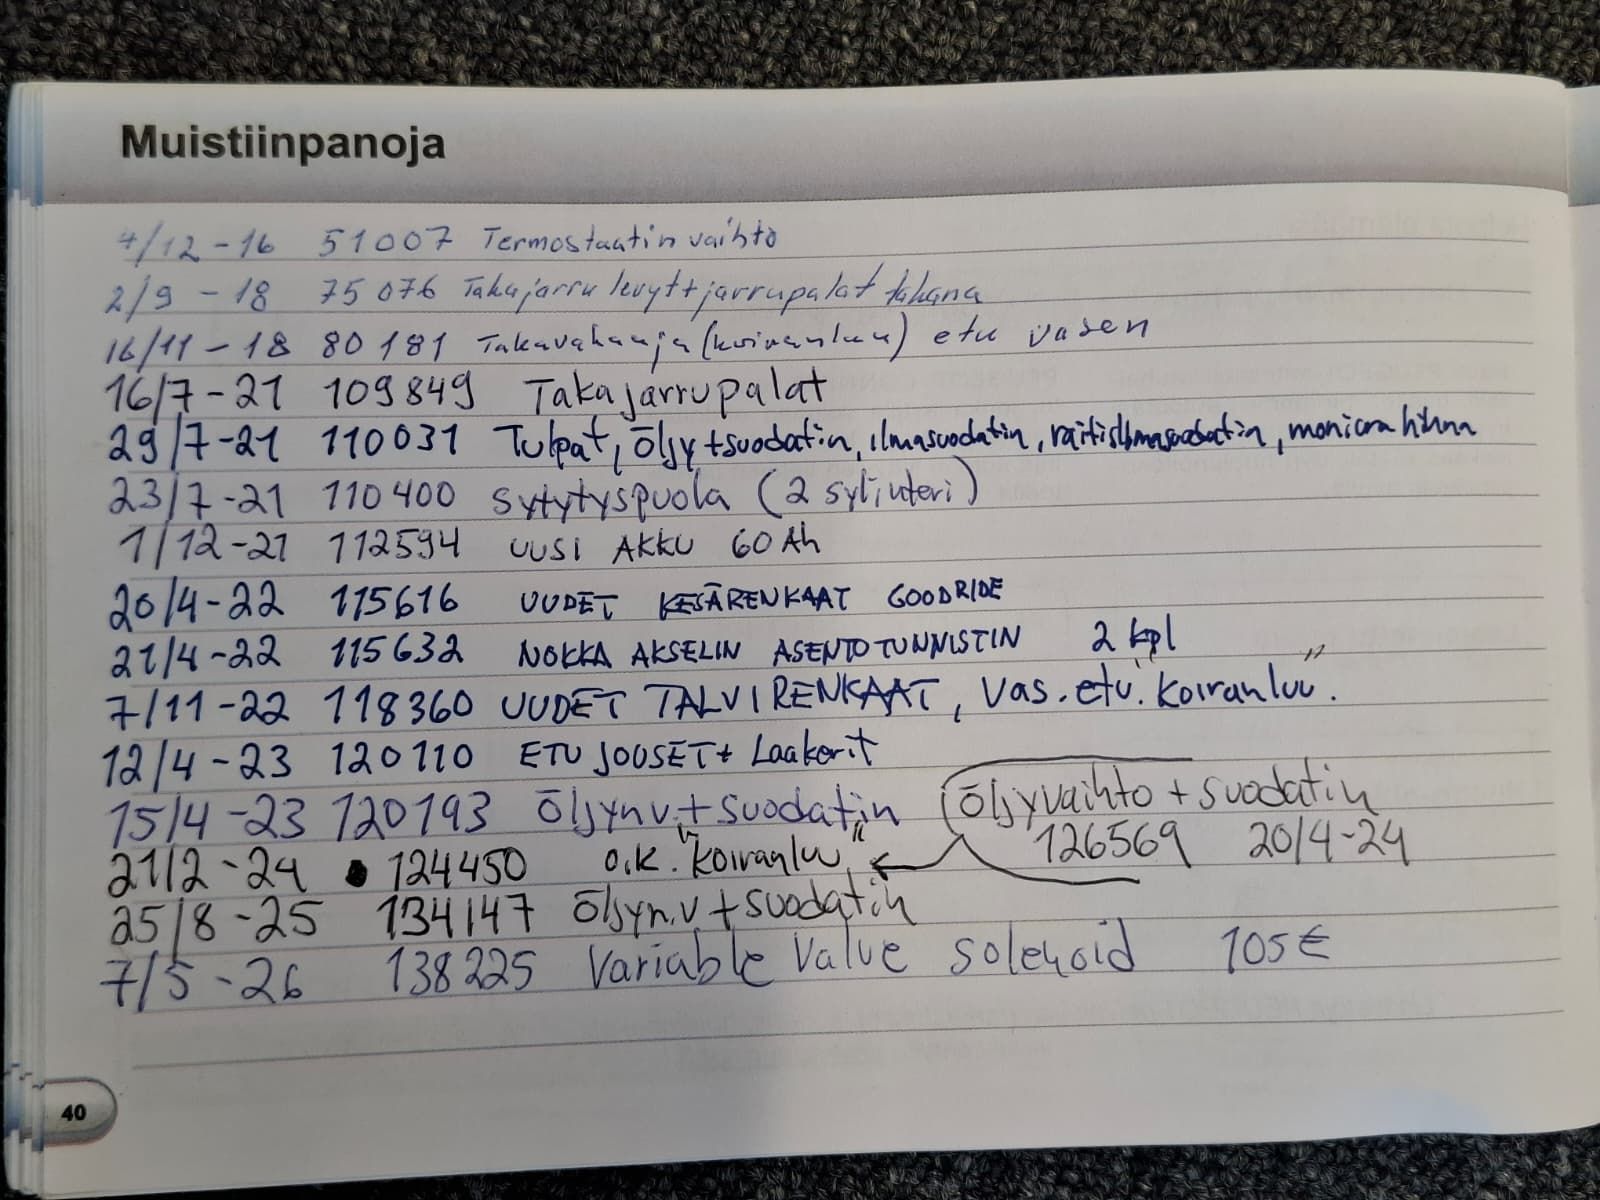 Muistiinpanoja
4/12-16 51007 Termostaatin vaihto
2/9-18 75076 Takajarru levyt+jarrupalat takana
16/11-18 80181 (koiranluu) etu vasen
16/7-21 109849 Takajarrupalat
29/7-21 110031 Tulpat, Öljy+suodatin, ilmasuodatin, raitisilmasuodatin, hihna
23/7-21 110400 Sytytyspuola (2 sylinteri)
1/12-21 112594 UUSI AKKU 60Ah
20/4-22 115616 UUDET KESÄRENKAAT GOODRIDE
21/4-22 115632 NOKKA AKSELIN ASENTOTUNNISTIN 2 kpl
7/11-22 118360 UUDET TALVIRENKAAT, Vas. etu. "koiranluu".
12/4-23 120110 ETU JOUSET+ Laakerit
15/4-23 120193 Öljynv.+suodatin
Öljyvaihto+suodatin
126569 20/4-24
21/2-24 124450 o.k. "koiranluu"
25/8-25 134147 Öljyn.v+suodatin
7/5-26 138225 Variable Valve solenoid 105€
40